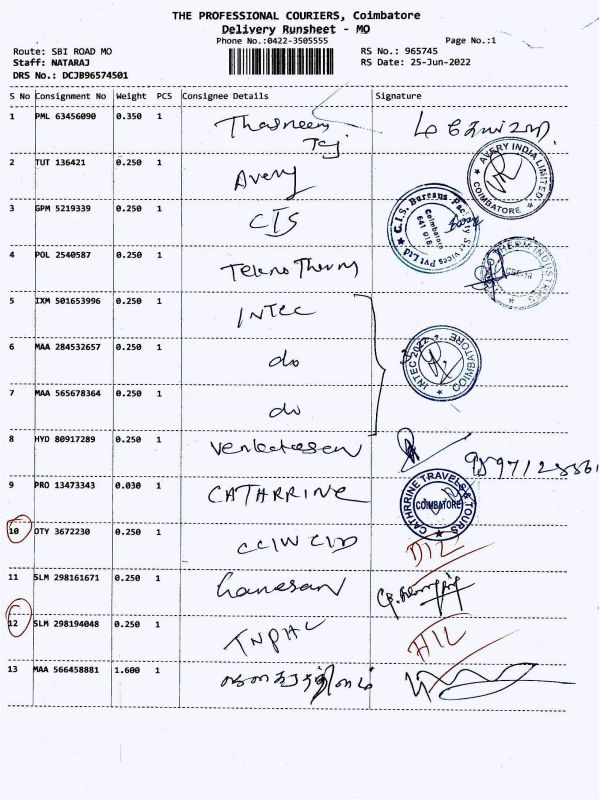 THE PROFESSIONAL COURIERS, Coimbatore
Delivery Runsheet - MO
Phone No.:0422-3505555
Page No.:1
Route: SBI ROAD MO
RS No.: 965745
Staff: NATARAJ
RS Date: 25-Jun-2022
DRS No.: DCJB96574501
S No Consignment No Weight PCS Consignee Details Signature
1 PML 63456090 0.350 1 Thasneem
Taj
2 TUT 136421 0.250 1 Avery
AVERY INDIA LIMITED
COIMBATORE
3 GPM 5219339 0.250 1 CIS
C.I.S. Bureaus Facility Services Pvt Ltd
Coimbatore
641 018
4 POL 2540587 0.250 1 Tekno Therm
5 IXM 501653996 0.250 1 INTEC
6 MAA 284532657 0.250 1 do
INTEC 2022
COIMBATORE
7 MAA 565678364 0.250 1 do
8 HYD 80917289 0.250 1 Venkatesan
9 PRO 13473343 0.030 1 CATHRRINE
CATHRRINE TRAVELS & TOURS
COIMBATORE
10 OTY 3672230 0.250 1 CCIW CID
11 SLM 298161671 0.250 1 Ganesan
12 SLM 298194048 0.250 1 TNPHC
13 MAA 566458881 1.600 1